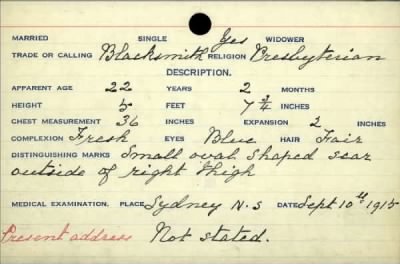 MARRIED SINGLE Yes WIDOWER
TRADE OR CALLING Blacksmith RELIGION Presbyterian
DESCRIPTION.
APPARENT AGE 22 YEARS 2 MONTHS
HEIGHT 5 FEET 7 3/4 INCHES
CHEST MEASUREMENT 36 INCHES EXPANSION 2 INCHES
COMPLEXION Fresh EYES Blue HAIR Fair
DISTINGUISHING MARKS Small oval shaped scar
outside of right thigh
MEDICAL EXAMINATION. PLACE Sydney N.S DATE Sept 10th 1915
Present address Not stated.